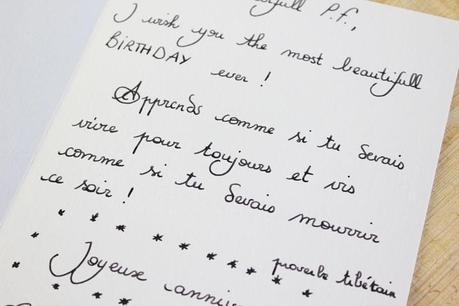 P.F.,
I wish you the most beautifull
BIRTHDAY ever !
Apprends comme si tu devais
vivre pour toujours et vis
comme si tu devais mourrir
ce soir !
proverbe tibétain
Joyeuse